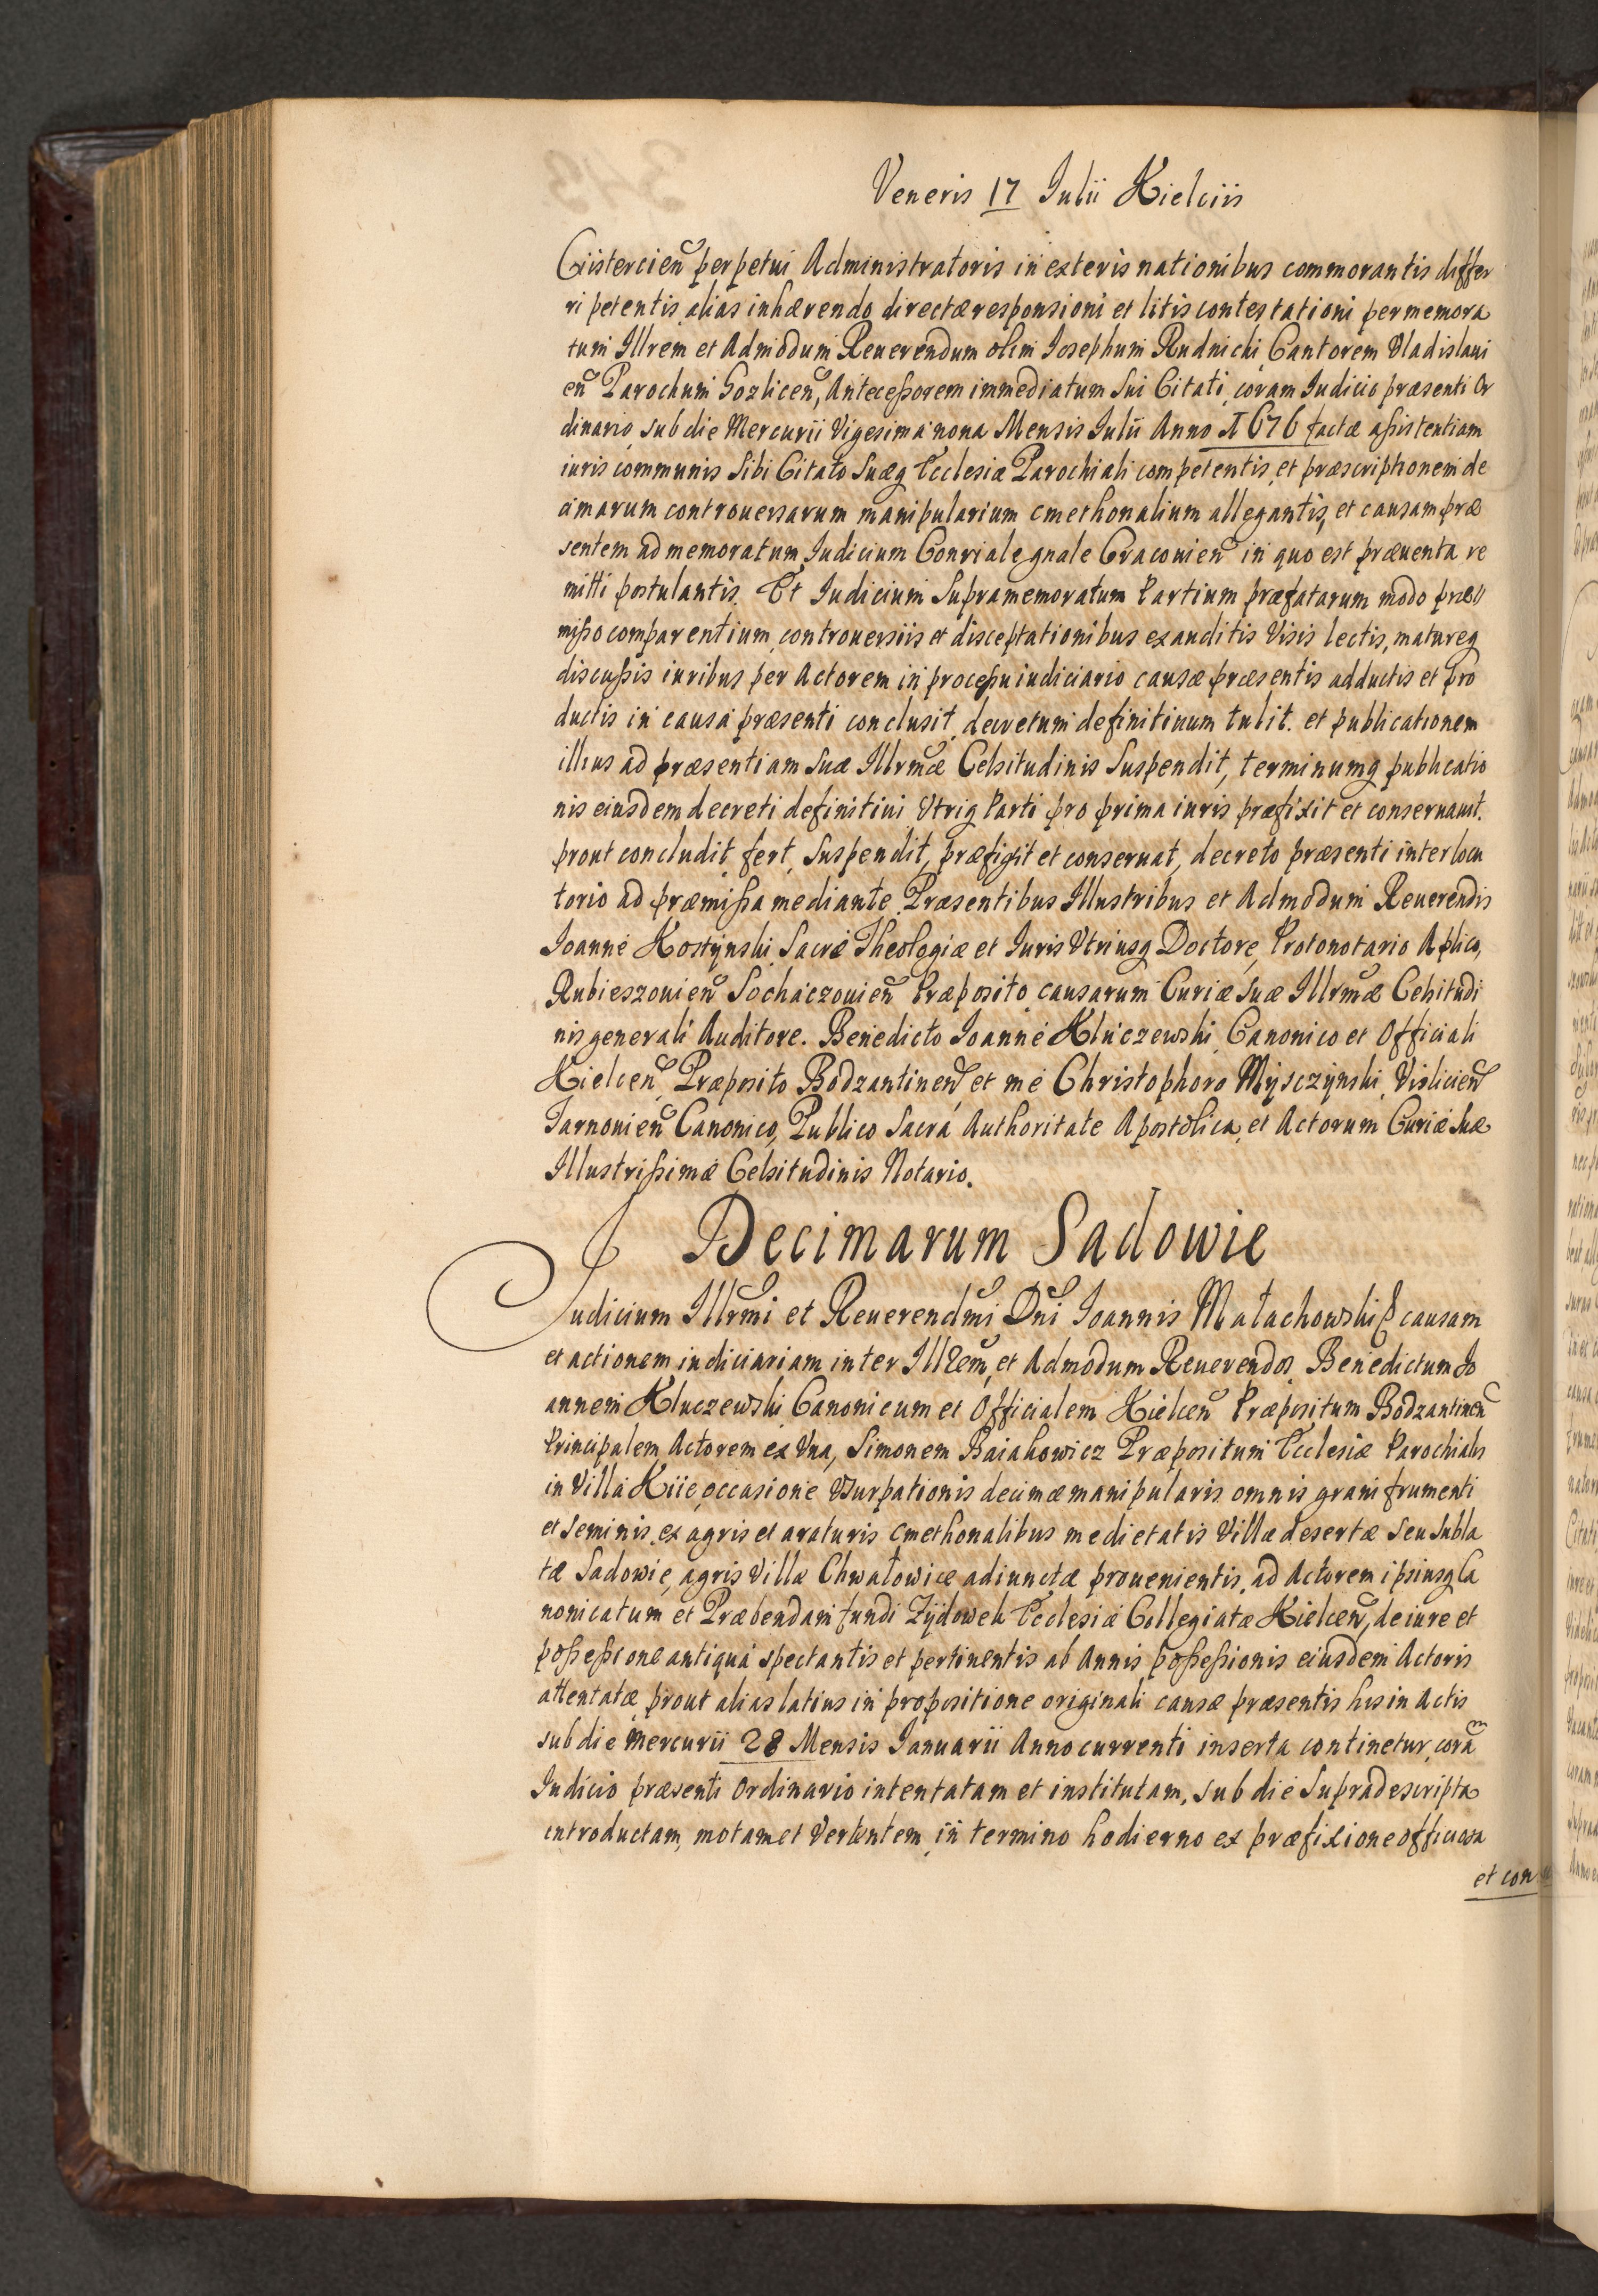 Veneris 17 Iulii Kielciis
Cistercień perpetui Administratoris in exteris nationibus commorantis differ
ri petentis, alias inhærendo directæ responsioni et litis contestationi per memora
tum Illrem et Admodum Reuerendum olim Iosephum Rudnicki Cantorem Vladislaui
eñ Parochum Gozliceñ, Antecessorem immediatum sui Citati, coram Iudicio præsenti Or
dinario sub die Mercurii Vigesima nona Mensis Iulii Anno 1676 factæ assistentiam
iuris communis sibi Citato suæq Ecclesiæ Parochiali competentis, et præscriptionem de
cimarum controuersarum manipularium cmethonalium allegantis, et causam præ
sentem ad memoratum Iudicium Conriale gnale Cracouień in quo est præuenta re
mitti postulantis. Et Iudicium Supramemoratum Partium præfatarum modo præ
misso comparentium, controuersiis et disceptationibus exauditis Visis lectis, matureq
discussis iuribus per Actorem in processu iudiciario causæ præsentis adductis et pro
ductis in causa præsenti conclusit, decretum definitiuum tulit. et publicationem
illius ad præsentiam suæ Illrmæ Celsitudinis Suspendit, terminumq publicatio
nis eiusdem decreti definitiui Vtriq Parti pro prima iuris præfixit et conseruauit.
prout concludit, fert, Suspendit, præfigit et conseruat, decreto præsenti interlocu
torio ad præmissa mediante. Præsentibus Illustribus et Admodum Reuerendis
Ioanne Kostÿnski, Sacræ Theologiæ et Iuris Vtriusq Doctore, Protonotario Aplico,
Rubieszouień Sochaczouień Præposito, causarum Curiæ suæ Illrmæ Celsitudi
nis generali Auditore. Benedicto Ioanne Kluczewski, Canonico et Officiali
Kielceñ, Præposito Bodzantineñ, et me Christophoro Mÿsczÿnski, Vislicień
Tarnouień Canonico, Publico Sacra Authoritate Apostolica, et Actorum Curiæ suæ
Illustrissimæ Celsitudinis Notario.
Decimarum Sadowie
Iudicium Illrmi et Reuerendmi Dni Ioannis Małachowski causam
et actionem iudiciariam inter Illrem, et Admodum Reuerendos Benedictum Io
annem Kluczewski Canonicum et Officialem Kielceñ Præpositum Bodzantineñ
Principalem Actorem ex Vna, Simonem Baiakowicz Præpositum Ecclesiæ Parochialis
in Villa Kiie, occasione Vsurpationis decimæ manipularis omnis grani frumenti
et seminis, ex agris et araturis cmethonalibus medietatis Villæ desertæ seu subla
tæ Sadowie, agris Villæ Chwałowice adiunctæ prouenientis, ad Actorem ipsiusq Ca
nonicatum et Præbendam fundi Zÿdowek Ecclesiæ Collegiatæ Kielceñ, de iure et
possessione antiqua spectantis et pertinentis ab Annis possessionis eiusdem Actoris
attentatæ, prout alias latius in propositione originali causæ præsentis his in Actis
sub die Mercurii 28 Mensis Ianuarii Anno currenti inserta continetur, coram
Iudicio præsenti Ordinario intentatam et institutam, sub die Supradescripta
introductam, motam et Vertentem, in termino hodierno ex præfixione officiosa
et con